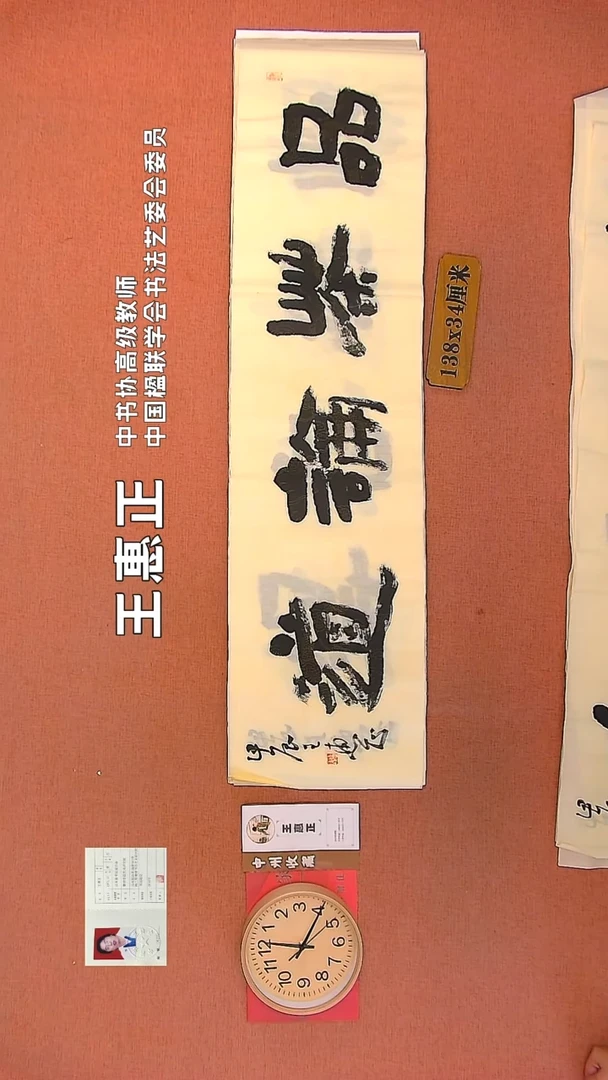 中书协高级教师
中国楹联学会书法艺委会委员
王惠正
品茶論道
甲辰王惠正
138x34厘米
王惠正
中州收藏
12
1
2
3
4
5
6
7
8
9
10
11